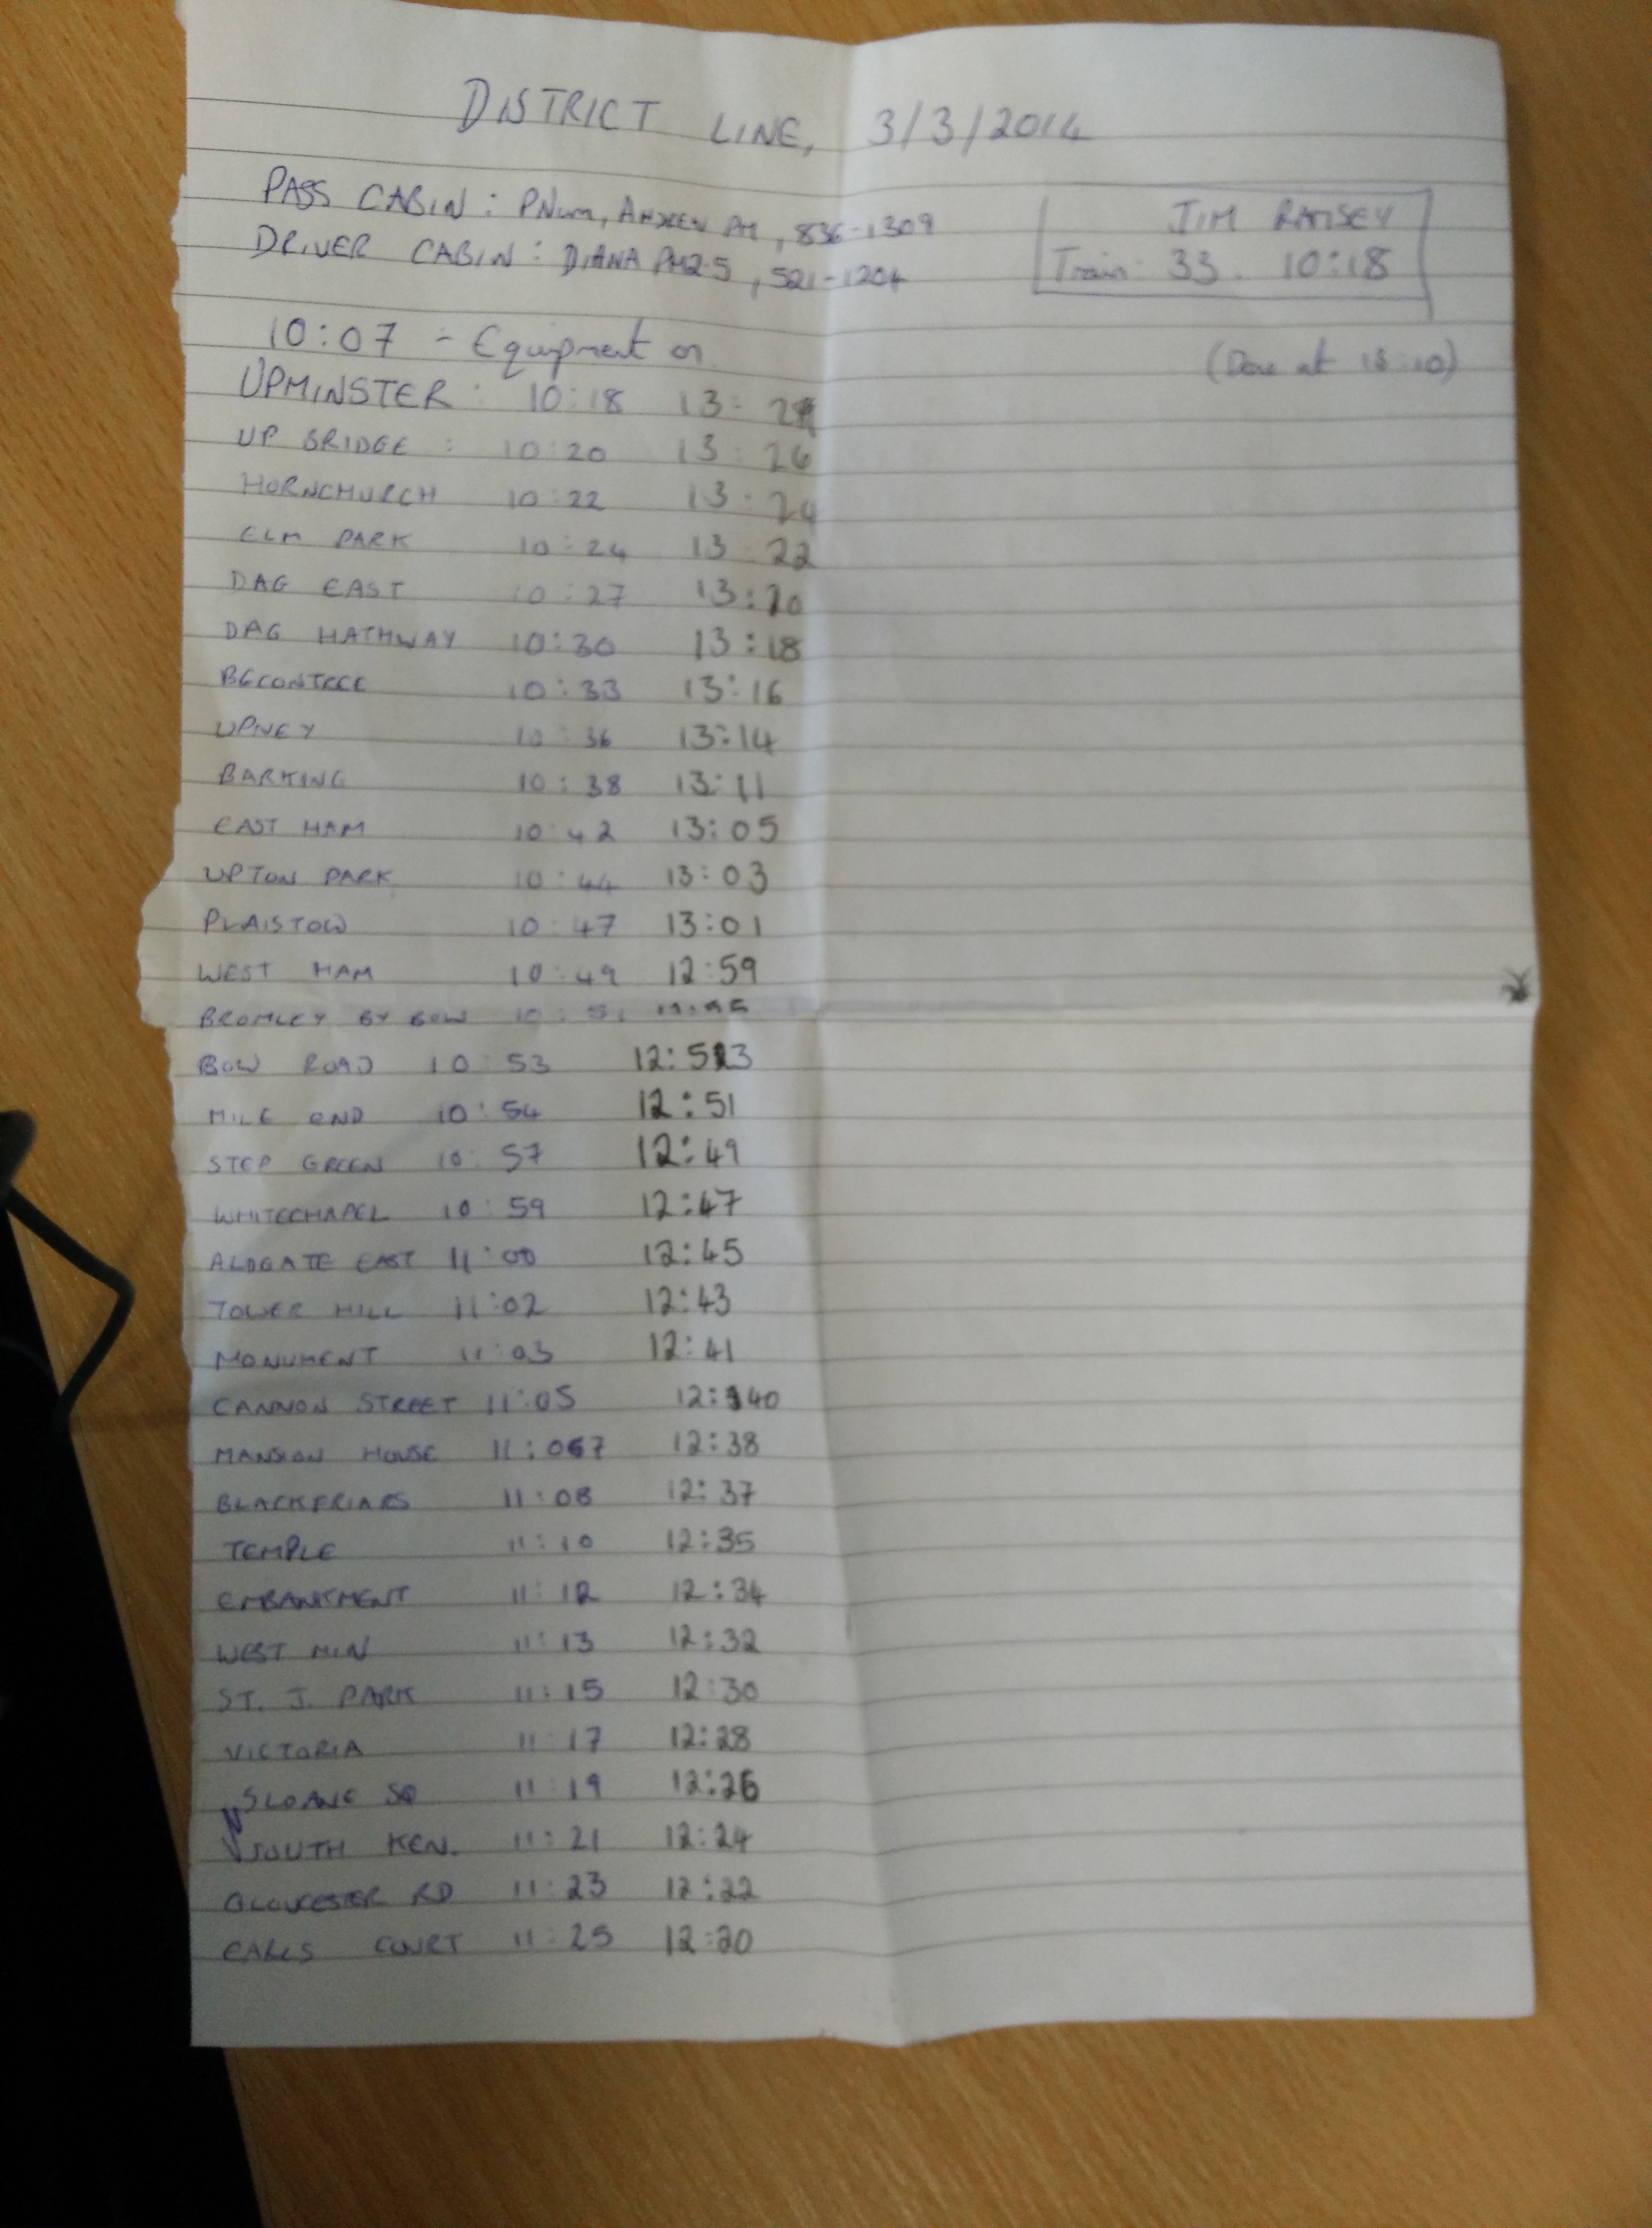 DISTRICT LINE, 3/3/2014
PASS CABIN : PNum, ANDREW PM, 836-1309
DRIVER CABIN : DIANA PM2.5, 521-1204
JIM RAMSEY
Train: 33. 10:18
10:07 - Equipment on
(Done at 13:10)
UPMINSTER : 10:18 13:28
UP BRIDGE : 10:20 13:26
HORNCHURCH 10:22 13:24
ELM PARK 10:24 13:22
DAG EAST 10:27 13:20
DAG HATHWAY 10:30 13:18
BECONTREE 10:33 13:16
UPNEY 10:36 13:14
BARKING 10:38 13:11
EAST HAM 10:42 13:05
UPTON PARK 10:44 13:03
PLAISTOW 10:47 13:01
WEST HAM 10:49 12:59
BROMLEY BY BOW 10:51
BOW ROAD 10:53 12:53
MILE END 10:54 12:51
STEP GREEN 10:57 12:49
WHITECHAPEL 10:59 12:47
ALDGATE EAST 11:00 12:45
TOWER HILL 11:02 12:43
MONUMENT 11:03 12:41
CANNON STREET 11:05 12:40
MANSION HOUSE 11:067 12:38
BLACKFRIARS 11:08 12:37
TEMPLE 11:10 12:35
EMBANKMENT 11:12 12:34
WEST MIN 11:13 12:32
ST. J. PARK 11:15 12:30
VICTORIA 11:17 12:28
SLOANE SQ 11:19 12:26
SOUTH KEN. 11:21 12:24
GLOUCESTER RD 11:23 12:22
EARLS COURT 11:25 12:20